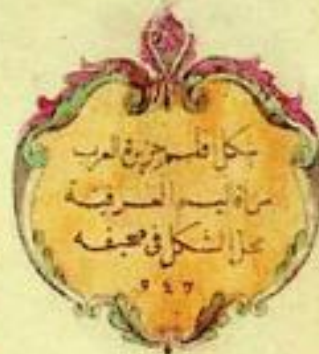 شكل اقليم جزيرة العرب
من اقاليم العرفية
محل الشكل فى صحيفه
٩٤٧